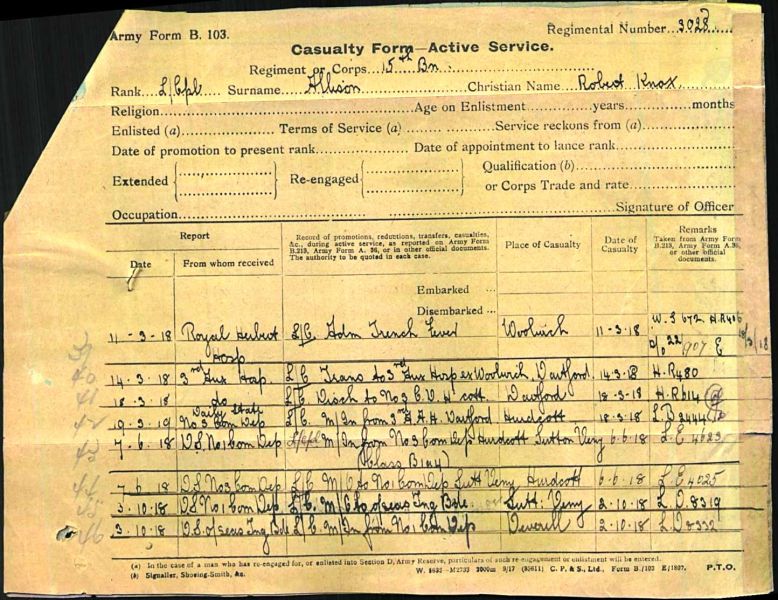 Army Form B. 103.
Regimental Number 3028
Casualty Form—Active Service.
Regiment or Corps 15th Bn.
Rank L/Cpl Surname Allison Christian Name Robert Knox
Religion Age on Enlistment years months
Enlisted (a) Terms of Service (a) Service reckons from (a)
Date of promotion to present rank Date of appointment to lance rank
Extended Re-engaged Qualification (b)
or Corps Trade and rate
Occupation Signature of Officer
Report
Date From whom received
Record of promotions, reductions, transfers, casualties, &c., during active service, as reported on Army Form B.213, Army Form A. 36, or in other official documents. The authority to be quoted in each case.
Place of Casualty
Date of Casualty
Remarks
Taken from Army Form B.213, Army Form A.36, or other official documents.
Embarked ...
Disembarked ...
W.3 672 H.R406
11-3-18 Royal Herbert Hosp L/C. Adm Trench Fever Woolwich 11-3-18
D/o 22 1907 E
14.3.18 3rd Aux Hosp. L/C Trans to 3rd Aux Hosp ex Woolwich Dartford 14.3.18 H.R480
18.3.18 do L/C Disch to No 3 C.D. H'cott Dartford 18-3-18 H.R614
19.3.19 Daily State No 3 Com Dep L/C. M/In from 3rd A.A.H Dartford Hurdcott 18.3.18 L.D2444
7-6.18 D.S. No1 Com Dep L/Cpl M/In from No 3 Com Dep Hurdcott Sutton Veny 6.6.18 L.E 4623
(Class B1a4)
7.6.18 D.S No3 Com Dep L/C M/O to No1 Com Dep Sutt Veny Hurdcott 6.6.18 L.E 4025
3.10.18 D.S No1 Com Dep L/C. M/O to O/seas Tng Bde Sutt: Veny 2-10-18 L.D.8319
3.10.18 D.S. O/seas Tng Bde L/C. M/In from No1 Com. Dep Deverill 2-10-18 L.D8332
40
41
42
43
44
45
46
(a) In the case of a man who has re-engaged for, or enlisted into Section D, Army Reserve, particulars of such re-engagement or enlistment will be entered.
(b) Signaller, Shoeing-Smith, &c.
P.T.O.